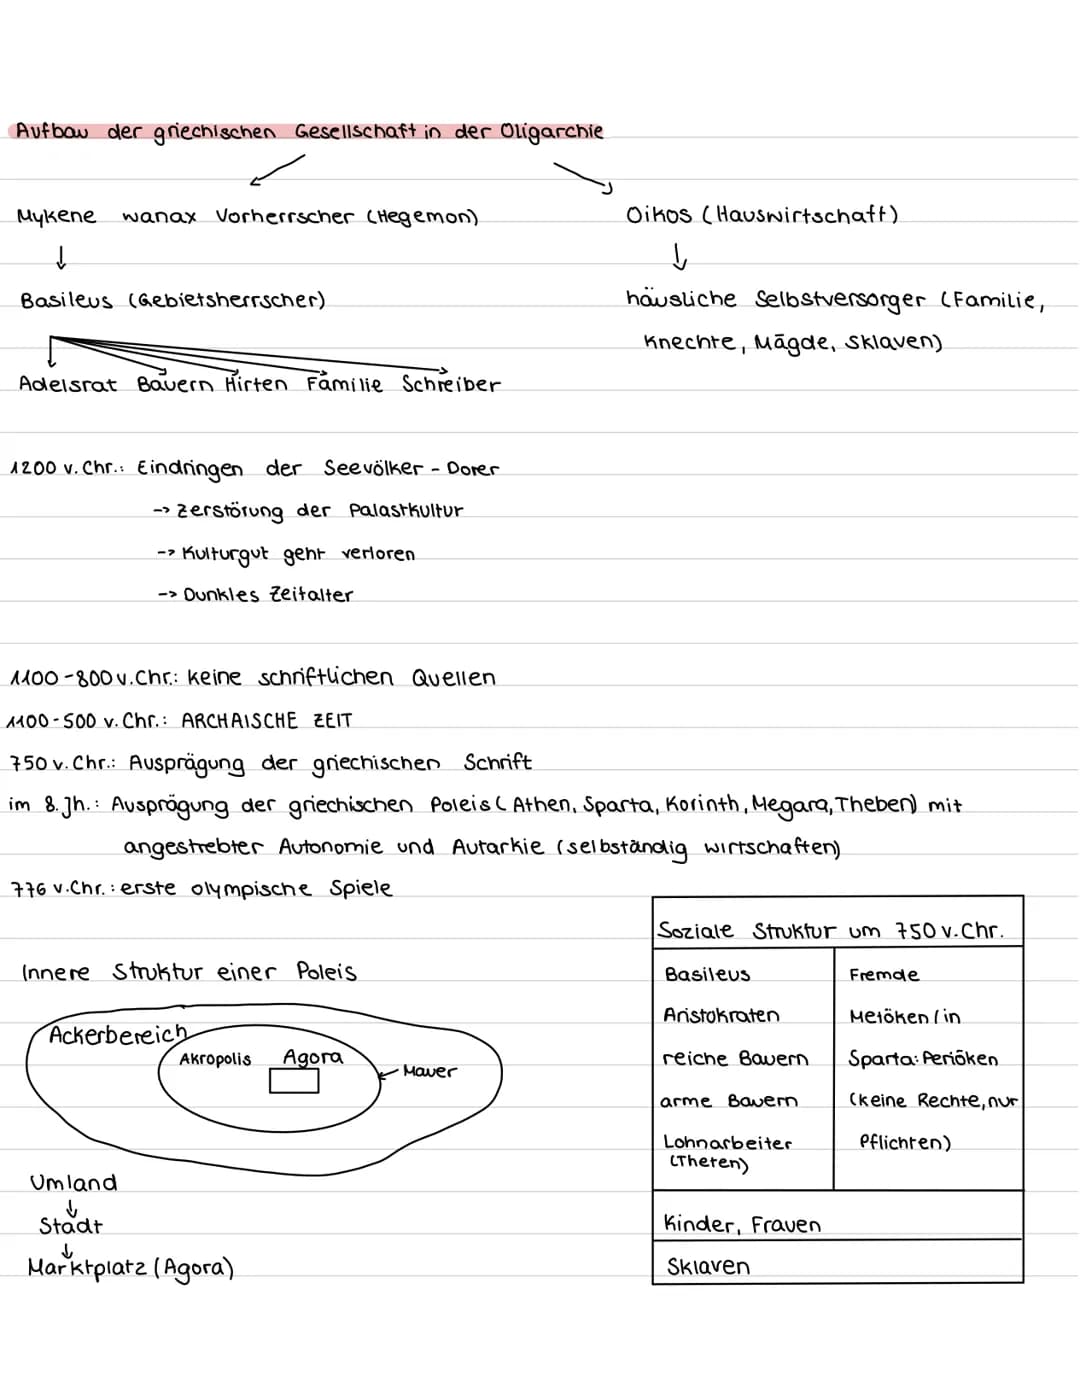 Aufbau der griechischen Gesellschaft in der Oligarchie
Mykene wanax Vorherrscher (Hegemon)
Oikos (Hauswirtschaft)
↓
↓
Basileus (Gebietsherrscher)
häusliche Selbstversorger (Familie,
Knechte, Mägde, Sklaven)
Adelsrat Bauern Hirten Familie Schreiber
1200 v. Chr.: Eindringen der Seevölker - Dorer
-> Zerstörung der Palastkultur
-> Kulturgut geht verloren
-> Dunkles Zeitalter
1100-800 v. Chr.: keine schriftlichen Quellen
1100-500 v. Chr.: ARCHAISCHE ZEIT
750 v. Chr.: Ausprägung der griechischen Schrift
im 8. Jh.: Ausprägung der griechischen Poleis (Athen, Sparta, Korinth, Megara, Theben) mit
angestrebter Autonomie und Autarkie (selbständig wirtschaften)
776 v. Chr.: erste olympische Spiele
Innere Struktur einer Poleis
Ackerbereich
Akropolis Agora
Mauer
Umland
↓
Stadt
↓
Marktplatz (Agora)
Soziale Struktur um 750 v. Chr.
Basileus
Aristokraten
reiche Bauern
arme Bauern
Lohnarbeiter
(Theten)
Fremde
Metöken / in
Sparta: Periöken
(keine Rechte, nur
Pflichten)
Kinder, Frauen
Sklaven